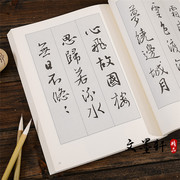 夢繞邊城月
心飛故國樓
思歸若汾水
無日不悠々
文墨軒